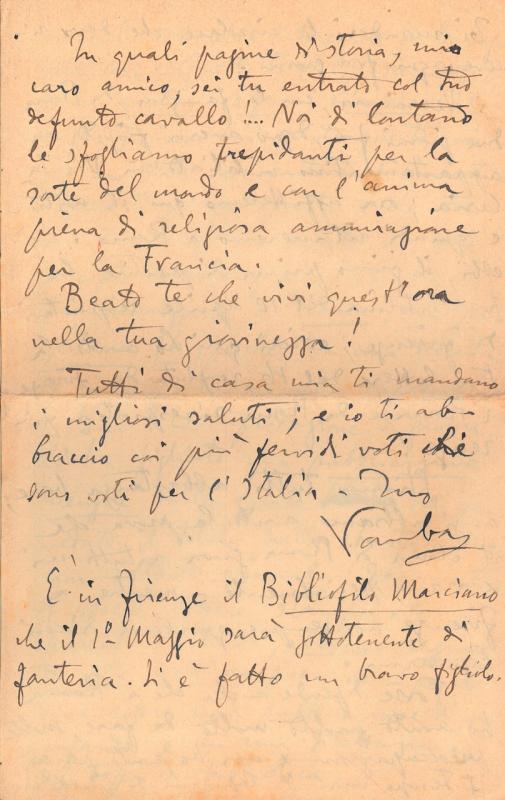 In quali pagine di storia, mio
caro amico, sei tu entrato col tuo
defunto cavallo!... Noi di lontano
le sfogliamo trepidanti per la
sorte del mondo e con l'anima
piena di religiosa ammirazione
per la Francia.
Beato te che vivi quest'ora
nella tua giovinezza!
Tutti di casa mia ti mandano
i migliori saluti; e io ti ab-
braccio coi più fervidi voti che
sono voti per l'Italia - Tuo
Vamba
È in Firenze il Bibliofilo Marciano
che il 1º Maggio sarà sottotenente di
fanteria. Si è fatto un bravo figliolo.